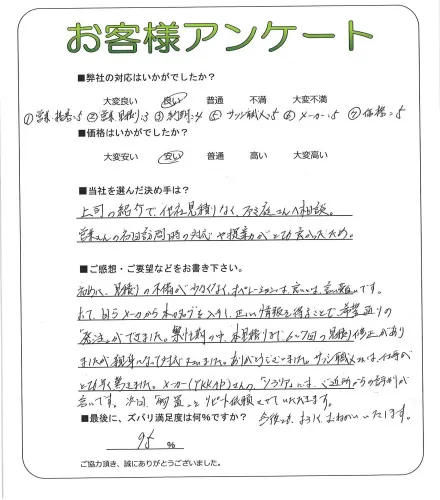 お客様アンケート
■弊社の対応はいかがでしたか?
大変良い 良い 普通 不満 大変不満
① 営業・指名=5 ② 営業 見積り=3 ③ 4 ⑤ サッシ職人=5 ⑥ メーカー=5 ⑦ 価格=5
■価格はいかがでしたか?
大変安い 安い 普通 高い 大変高い
■当社を選んだ決め手は?
上司の紹介で、他社見積りなく、 さんへ相談。
営業さんの初回訪問時の対応や提案がとても良かったため。
■ご感想・ご要望などをお書き下さい。
初めに、見積りの不備が少なくなく、オペレーションは良いとは言い難いです。
自らメーカーから を入手し、正しい情報を得ることで希望通りの
「発注」ができました。 の中、本見積りまで6~7回の見積り修正があり
ましたが親身になって対応 ました。ありがとうございました。サッシ職人さんは、仕事が
とても早く驚きました。メーカー(YKKAP)さんの「シラリア」は、ご近所からの評判が
良いです。次回、 リピート依頼させていただきます。
■最後に、ズバリ満足度は何%ですか?
今後とも、よろしくおねがいいたします。
95 %
ご協力頂き、誠にありがとうございました。